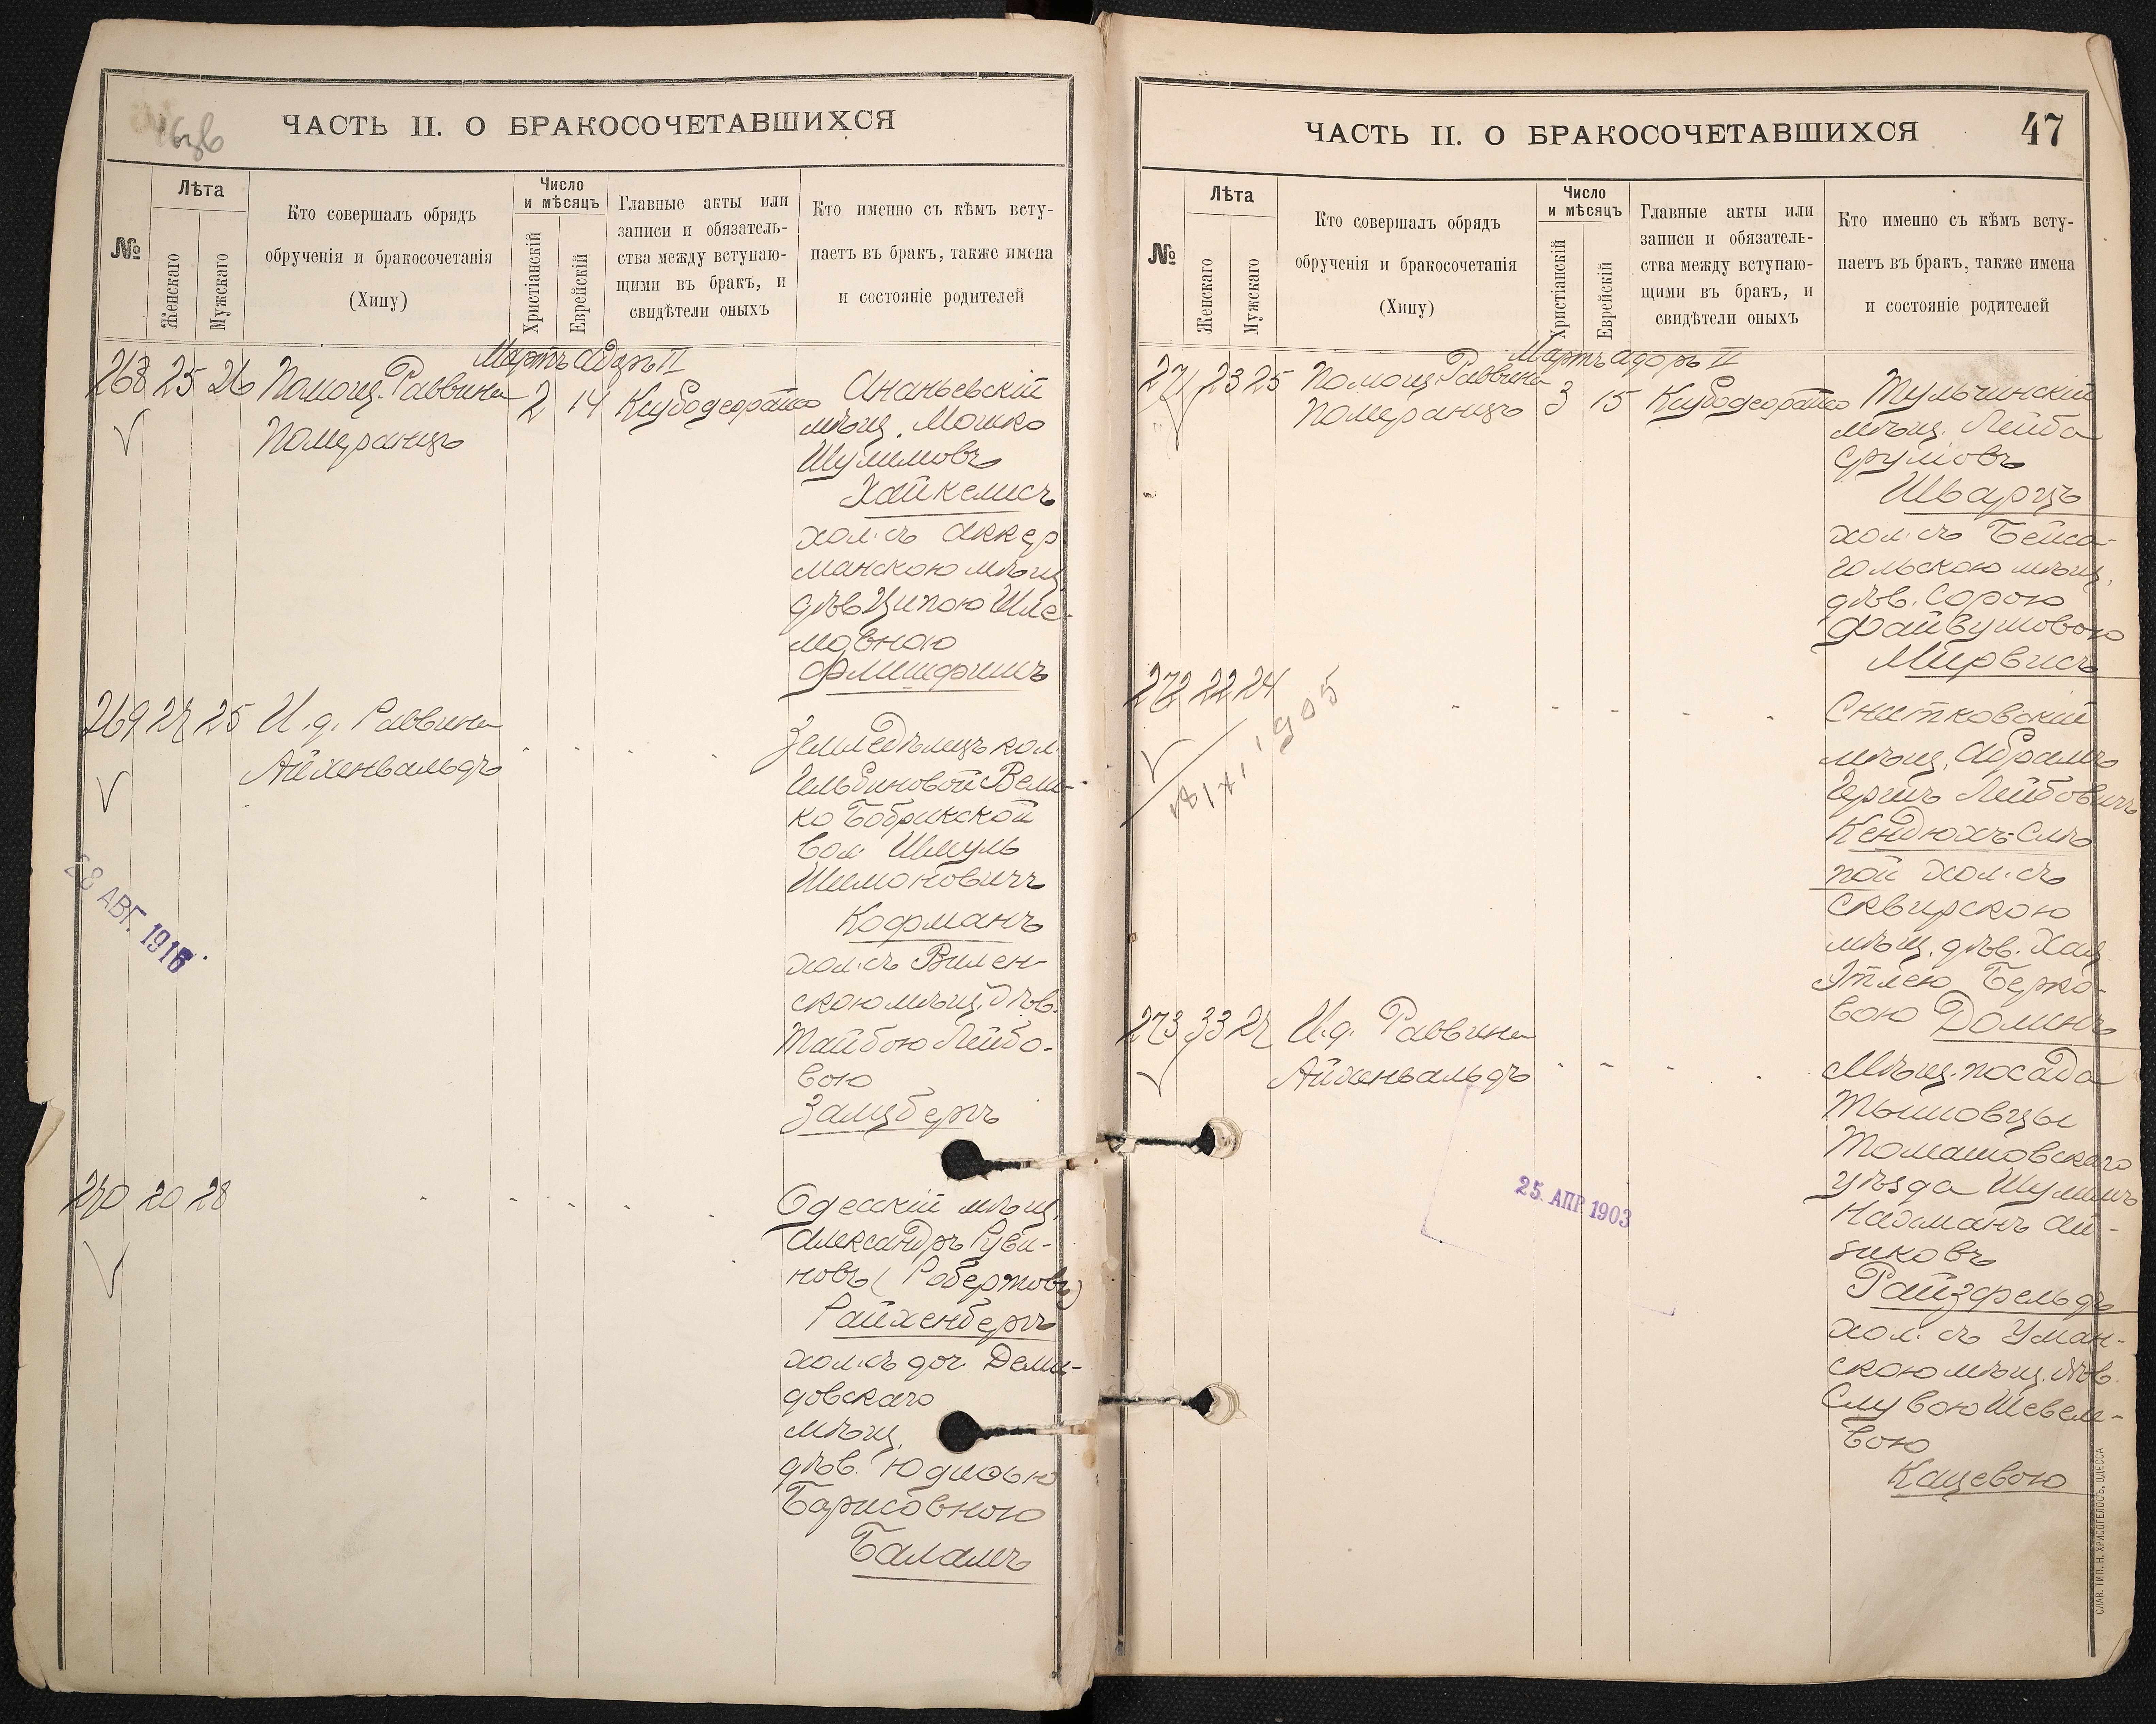 ЧАСТЬ II. О БРАКОСОЧЕТАВШИХСЯ
№
Лѣта
Женскаго
Мужскаго
Кто совершалъ обрядъ
обрученія и бракосочетанія
(Хипу)
Число
и мѣсяцъ
Христіанскій
Еврейскій
Главные акты или
записи и обязатель-
ства между вступаю-
щими въ бракъ, и
свидѣтели оныхъ
Кто именно съ кѣмъ всту-
паетъ въ бракъ, также имена
и состояніе родителей
Мартъ Адаръ II
268 25 26 Помощ. Раввина 2 14
Померанцъ
Ананьевскій
мѣщ. Мошко
Шулимовъ
Хайкелисъ
хол. съ Аккер
манскою мѣщ
дѣв Ципою Шле-
мовною
Флишфишъ
269 27 25 И. д. Раввина
Айхенвальдъ
Земледѣлецъ кол.
Ильбиновой Вели-
ко Бобрикской
вол Шмуль
Шимоновичъ
Кофманъ
хол. съ Вилен-
скою мѣщ. дѣв.
Тайбою Лейбо-
вою
Залцбергъ
28 АВГ. 1916
270 20 28
Одесскій мѣщ.
Александръ Руви-
новъ (Робертовъ)
Райхенбергъ
хол. съ доч. Деми-
довскаго
мѣщ.
дѣв. Юдисью
Борисовною
Баламъ
ЧАСТЬ II. О БРАКОСОЧЕТАВШИХСЯ
47
№
Лѣта
Женскаго
Мужскаго
Кто совершалъ обрядъ
обрученія и бракосочетанія
(Хипу)
Число
и мѣсяцъ
Христіанскій
Еврейскій
Главные акты или
записи и обязатель-
ства между вступаю-
щими въ бракъ, и
свидѣтели оныхъ
Кто именно съ кѣмъ всту-
паетъ въ бракъ, также имена
и состояніе родителей
Мартъ Адоръ II
271 23 25 Помощ. Раввина 3 15
Померанцъ
Тульчинскій
мѣщ. Лейба
Сруловъ
Шварцъ
хол. съ Бейса-
гольскою мѣщ.
дѣв. Сорою
Файвушовою
Мирвисъ
272 22 24
18/XI 1905
Снитковскій
мѣщ. Абрамъ
Гершъ Лейбовичъ
Кендюхъ-Слѣ
пой хол. съ
Сквирскою
мѣщ. дѣв. Хая
Этлею Берко-
вою Долинъ
273 33 27 И. д. Раввина
Айхенвальдъ
Мѣщ. посада
Тышовцы
Томашовскаго
уѣзда Шулимъ
Нахманъ Ай-
зиковъ
Райзфельдъ
хол. съ Уман-
скою мѣщ. дѣв.
Слувою Шевеле-
вою
Кацевою
25. АПР. 1903
СЛАВ. ТИП. Н. ХРИСОГЕЛОСЪ, ОДЕССА